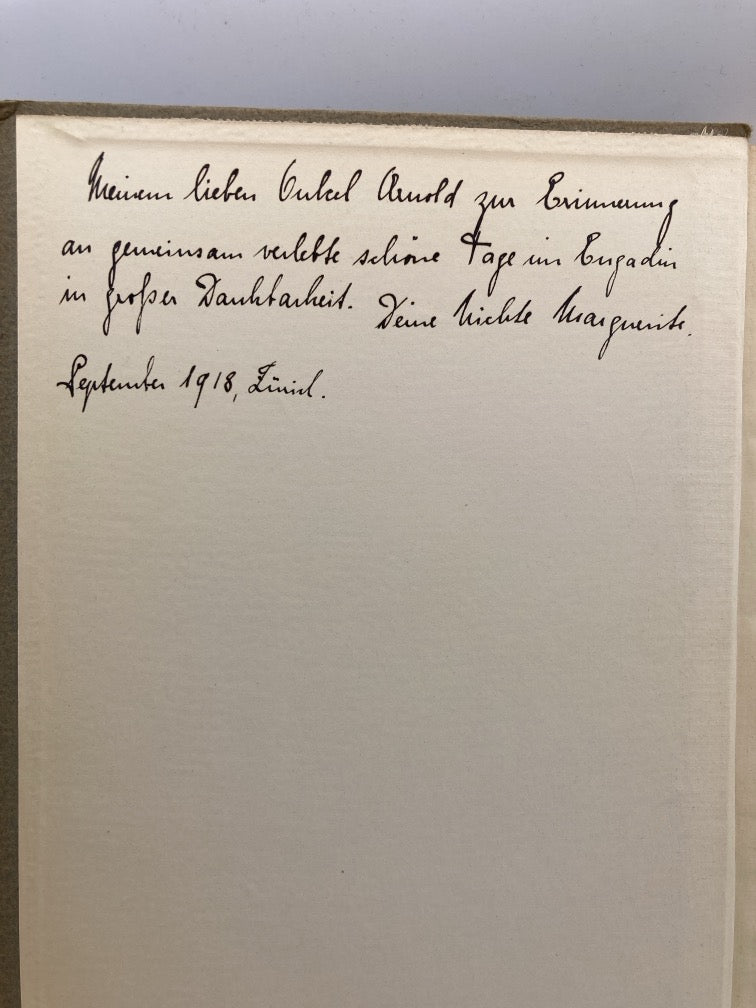 Meinem lieben Onkel Arnold zur Erinnerung
an gemeinsam verlebte schöne Tage im Engadin
in großer Dankbarkeit. Deine Nichte Marguerite.
September 1918, Zürich.